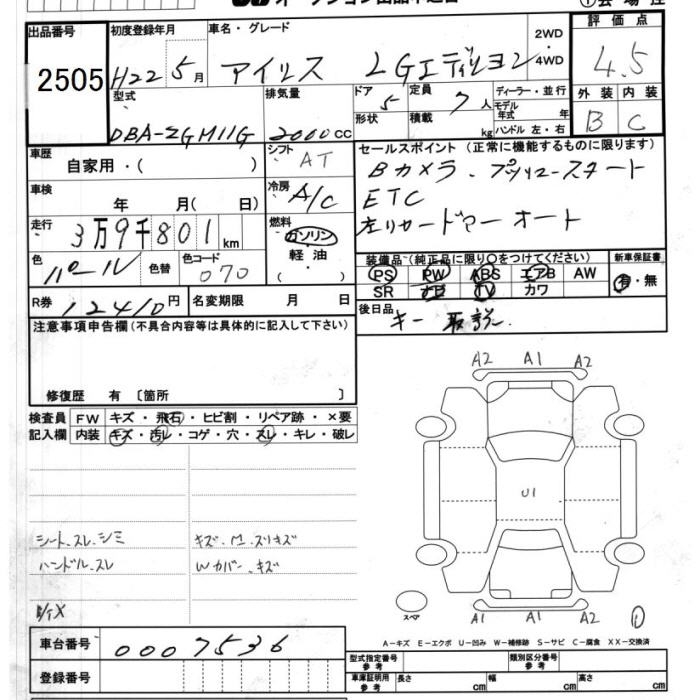 出品番号 初度登録年月 車名・グレード 2WD 評価点
2505 H22 5月 アイリス LGエディション 4WD 4.5
型式 排気量 ドア 5 定員 7人 ディーラー・並行 外装 内装
DBA-ZGM11G 2000cc 形状 積載 kg モデル年式 年 ハンドル 左・右 B C
車歴 自家用・( ) シフト AT セールスポイント (正常に機能するものに限ります)
車検 年 月 ( 日) 冷房 A/C Bカメラ、プッシュースタート
ETC
走行 3万9千801km 燃料 ガソリン 左リヤードアーオート
軽油 ・( )
色 パール 色替 色コード 070 装備品 (純正品に限り○をつけてください) 新車保証書
PS PW ABS エアB AW 有・無
SR ナビ TV カワ
R券 12410円 名変期限 月 日 後日品 キー 取説
注意事項申告欄(不具合内容等は具体的に記入して下さい)
修復歴 有 〔箇所 〕
検査員 FW キズ・飛石・ヒビ割・リペア跡・×要
記入欄 内装 キズ・汚レ・コゲ・穴・スレ・キレ・破レ
A2 A1 A2
U1
シート、スレ、シミ
ハンドル、スレ
Wカバー、キズ
スペア
A1 A1 A2
A-キズ E-エクボ U-凹み W-補修跡 S-サビ C-腐食 XX-交換済
車台番号 0007536
登録番号
型式指定番号 参考 類別区分番号 参考
車庫証明用 参考 長さ cm 幅 cm 高さ cm